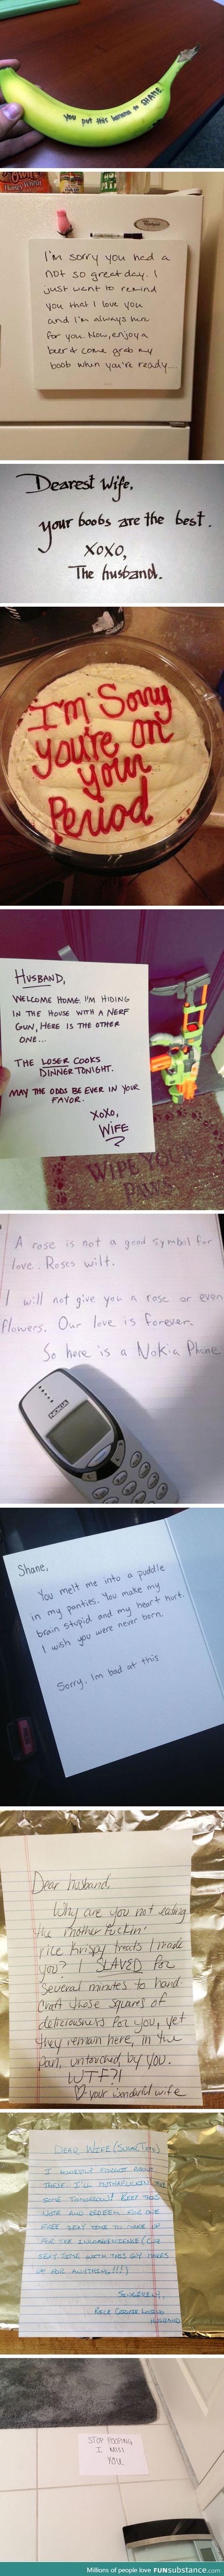 You put this banana to SHAME.
I'm sorry you had a
not so great day. I
just want to remind
you that I love you
and I'm always here
for you. Now, enjoy a
beer & come grab my
boob when you're ready...
Dearest Wife,
your boobs are the best.
xoxo,
The husband.
I'm Sorry
You're on
your
Period
HUSBAND,
WELCOME HOME. I'M HIDING
IN THE HOUSE WITH A NERF
GUN, HERE IS THE OTHER
ONE...
THE LOSER COOKS
DINNER TONIGHT.
MAY THE ODDS BE EVER IN YOUR
FAVOR.
XOXO,
WIFE
WIPE YOUR
PAWS
A rose is not a good symbol for
love. Roses wilt.
I will not give you a rose or even
flowers. Our love is forever.
So here is a Nokia Phone
NOKIA
Shane,
You melt me into a puddle
in my panties. You make my
brain stupid and my heart hurt.
I wish you were never born.
Sorry. Im bad at this
Dear husband,
Why are you not eating
the mother fuckin'
rice Krispy treats I made
you? I SLAVED for
several minutes to hand-
craft those squares of
deliciousness for you, yet
they remain here, in the
pan, untouched by you.
WTF?!
♡ your wonderful wife
DEAR WIFE
FORGOT ABOUT
THESE. I'LL
SOME TOMORROW! KEEP THIS
NOTE AND REDEEM FOR ONE
FREE SEXY TIME TO MAKE UP
FOR THE INCONVENIENCE (CUZ
SEXY TIME WITH THIS GUY MAKES
UP FOR ANYTHING!!!)
SINCERELY,
HUSBAND
STOP POOPING
I MISS
YOU
Millions of people love FUNsubstance.com